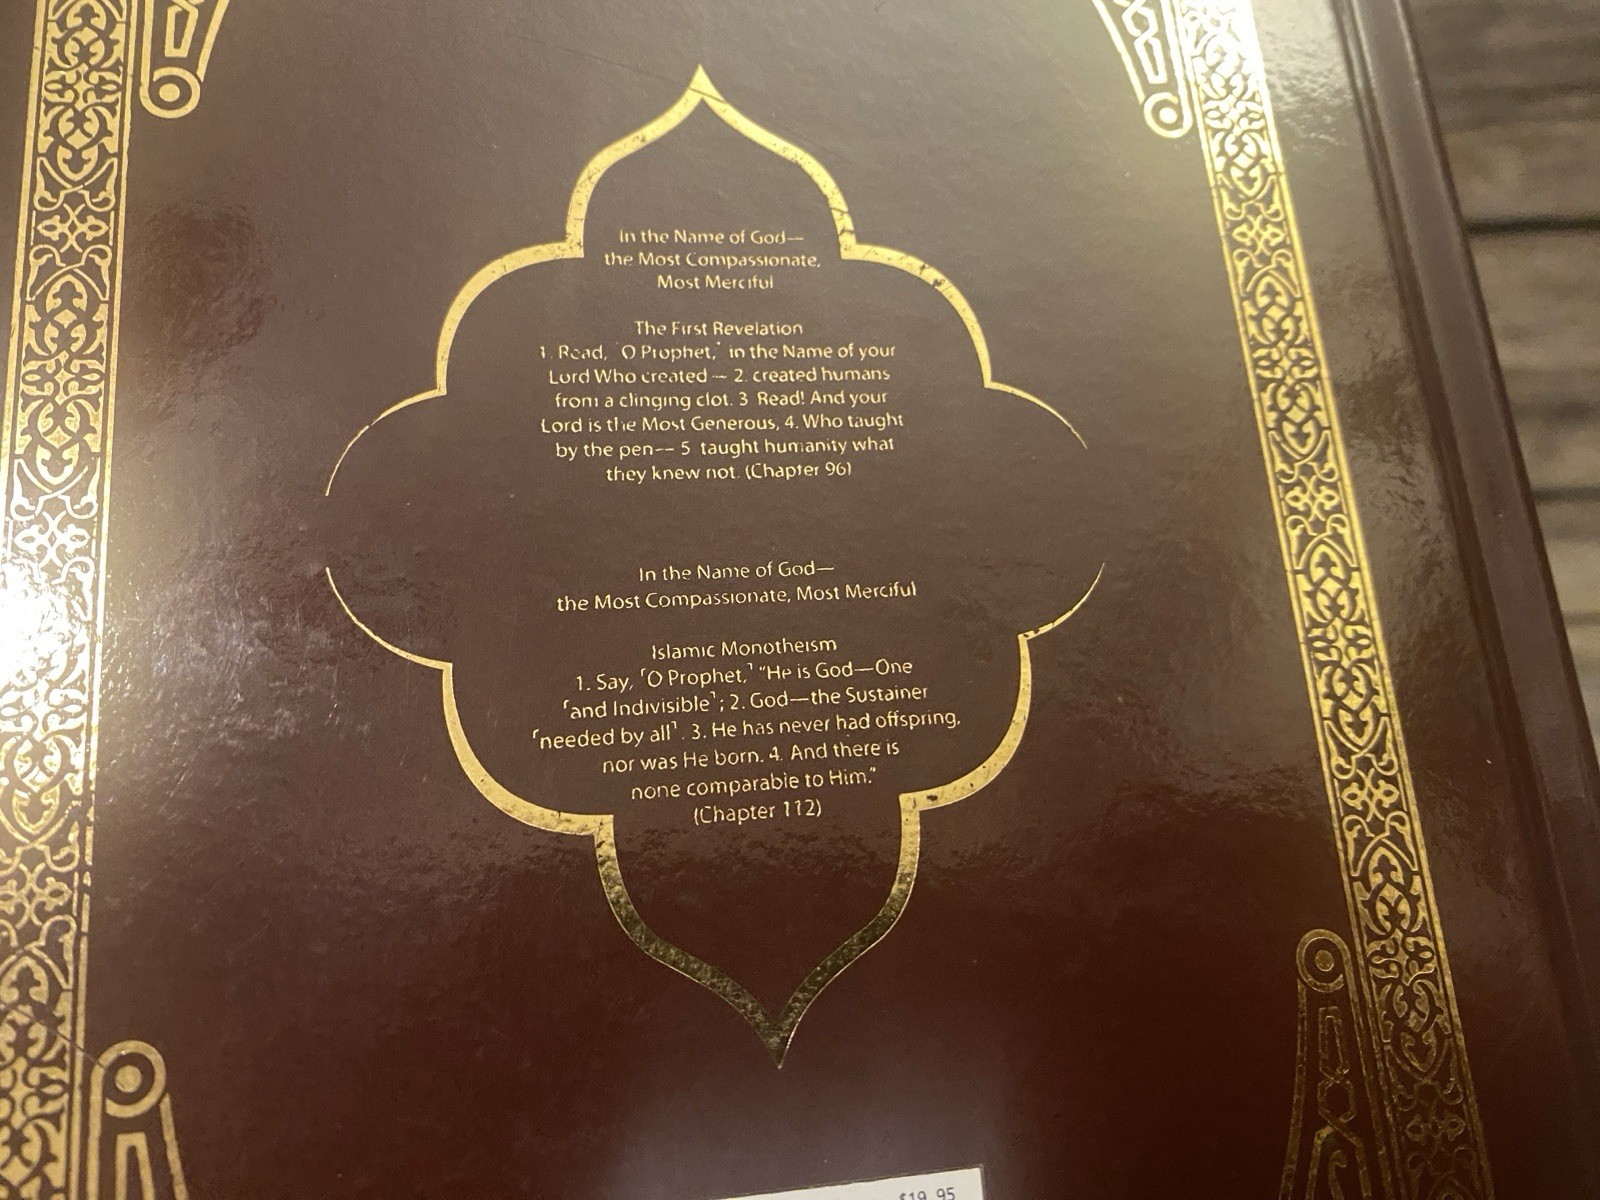 In the Name of God—
the Most Compassionate,
Most Merciful
The First Revelation
1. Read, ˹O Prophet,˺ in the Name of your
Lord Who created — 2. created humans
from a clinging clot. 3 Read! And your
Lord is the Most Generous, 4. Who taught
by the pen-- 5 taught humanity what
they knew not. (Chapter 96)
In the Name of God—
the Most Compassionate, Most Merciful
Islamic Monotheism
1. Say, ˹O Prophet,˺ “He is God—One
˹and Indivisible˺ ; 2. God—the Sustainer
˹needed by all˺ . 3. He has never had offspring,
nor was He born. 4. And there is
none comparable to Him.”
(Chapter 112)
$19.95